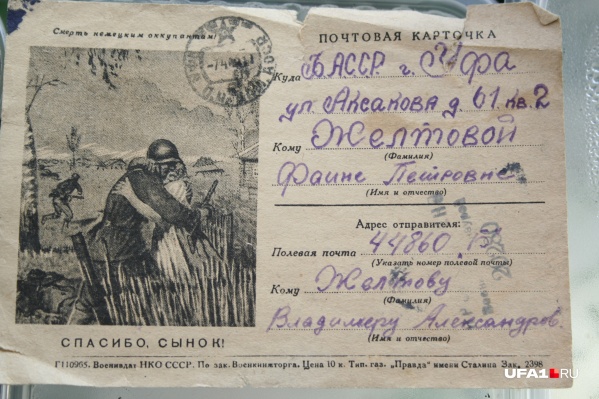 Смерть немецким оккупантам!
ПОЧТОВАЯ КАРТОЧКА
Куда БАССР г. Уфа
ул. Аксакова д. 61 кв. 2
Кому Желтовой
(Фамилия)
Фаине Петровне
(Имя и отчество)
Адрес отправителя:
Полевая почта 44860.
(Указать номер полевой почты)
Кому Желтову
(Фамилия)
Владимеру Александров.
(Имя и отчество)
СПАСИБО, СЫНОК!
Г110965. Воениздат НКО СССР. По зак. Военкнижторга. Цена 10 к. Тип. газ. „Правда" имени Сталина Зак. 2398
UFA1.RU